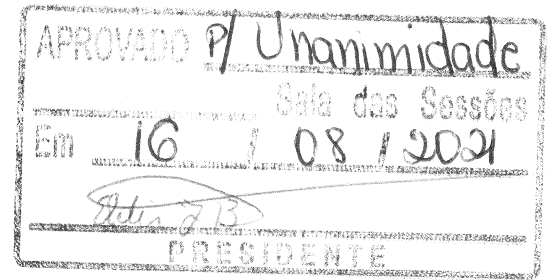 APROVADO P/ Unanimidade
Sala das Sessões
Em 16 / 08 / 2021
PRESIDENTE